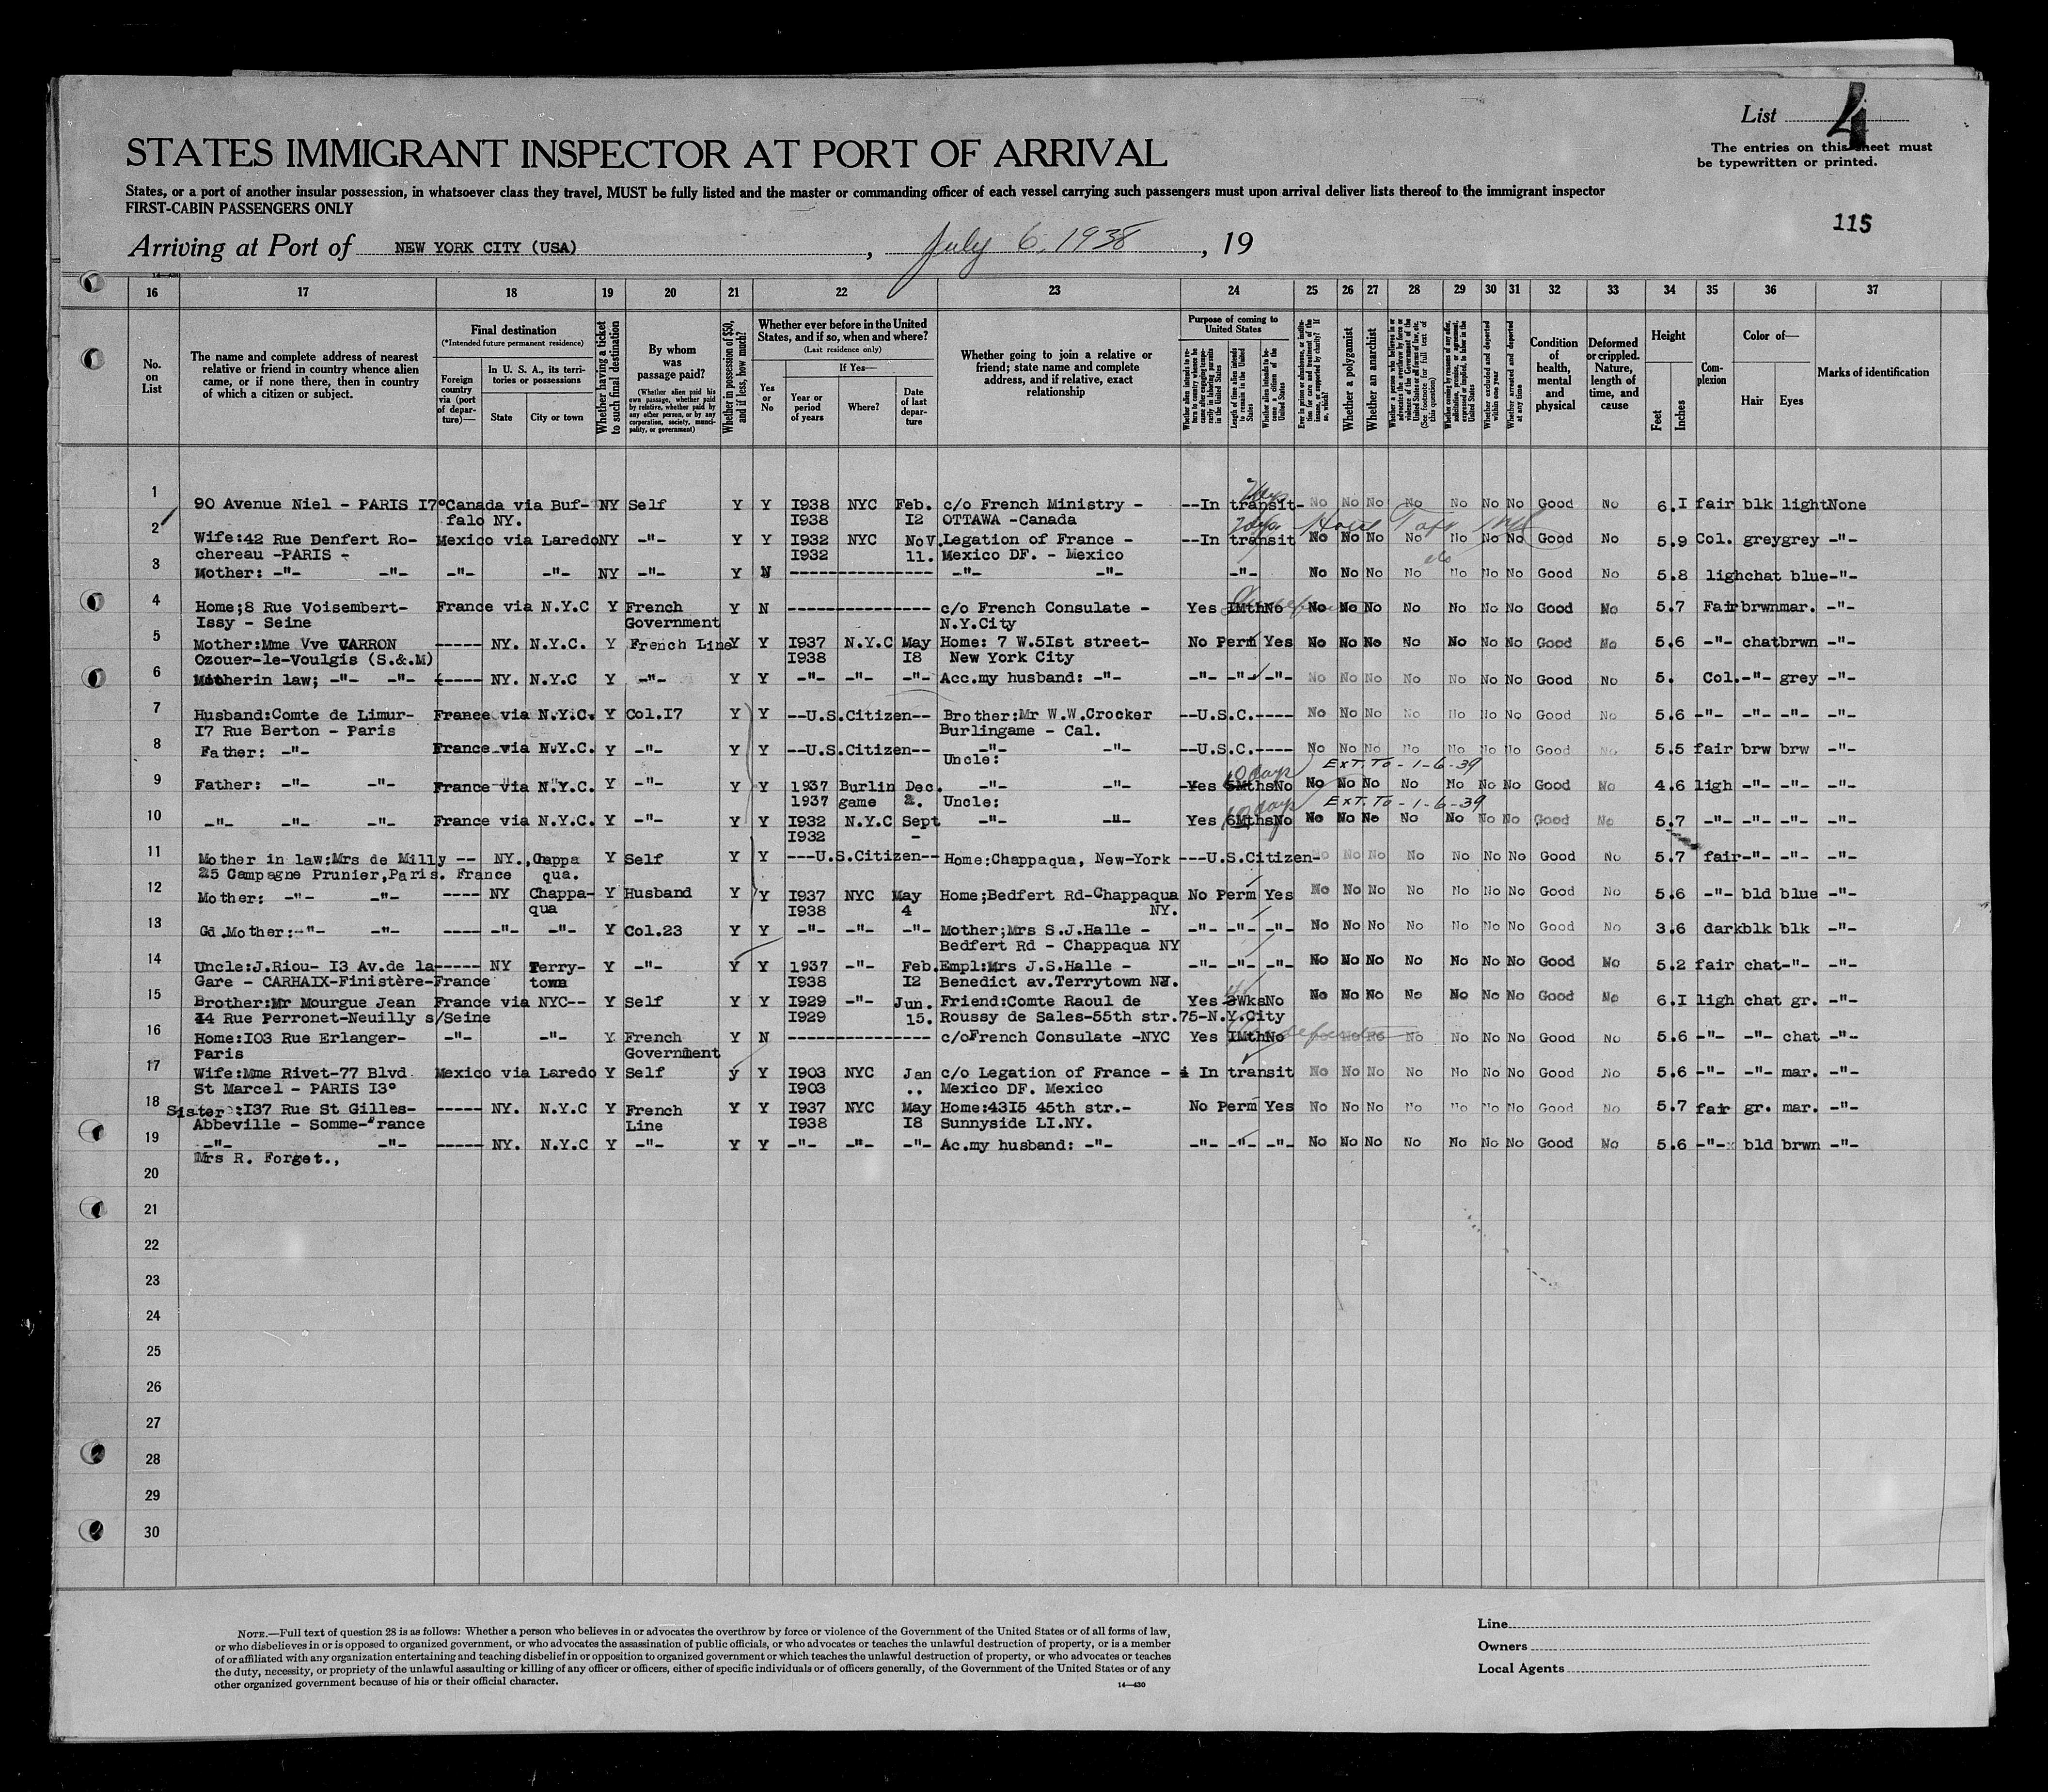 List 4
STATES IMMIGRANT INSPECTOR AT PORT OF ARRIVAL
The entries on this sheet must
be typewritten or printed.
States, or a port of another insular possession, in whatsoever class they travel, MUST be fully listed and the master or commanding officer of each vessel carrying such passengers must upon arrival deliver lists thereof to the immigrant inspector
FIRST-CABIN PASSENGERS ONLY
115
Arriving at Port of NEW YORK CITY (USA), July 6, 1938, 19
16 17 18 19 20 21 22 23 24 25 26 27 28 29 30 31 32 33 34 35 36 37
No. on List
The name and complete address of nearest relative or friend in country whence alien came, or if none there, then in country of which a citizen or subject.
Final destination
(*Intended future permanent residence)
Foreign country via (port of departure)—
In U. S. A., its territories or possessions
State
City or town
Whether having a ticket to such final destination
By whom was passage paid?
(Whether alien paid his own passage, whether paid by relative, whether paid by any other person, or by any corporation, society, municipality, or government)
Whether in possession of $50, and if less, how much?
Whether ever before in the United States, and if so, when and where?
(Last residence only)
Yes or No
If Yes—
Year or period of years
Where?
Date of last departure
Whether going to join a relative or friend; state name and complete address, and if relative, exact relationship
Purpose of coming to United States
Whether alien intends to return to country whence he came after engaging temporarily in laboring pursuits in the United States
Length of time alien intends to remain in the United States
Whether alien intends to become a citizen of the United States
Ever in prison or almshouse, or institution for care and treatment of the insane, or supported by charity? If so, which?
Whether a polygamist
Whether an anarchist
(See footnote for full text of this question)
Whether excluded and deported within one year
Whether arrested and deported at any time
Condition of health, mental and physical
Deformed or crippled. Nature, length of time, and cause
Height
Feet
Inches
Complexion
Color of—
Hair
Eyes
Marks of identification
1 90 Avenue Niel - PARIS I7° Canada via Buf- NY Self Y Y I938 NYC Feb. c/o French Ministry - --In transit- No No No No No No No Good No 6.I fair blk light None
falo NY. I938 I2 OTTAWA -Canada
2 Wife:42 Rue Denfert Ro- Mexico via Laredo NY -"- Y Y I932 NYC Nov. Legation of France - --In transit No No No No No No No Good No 5.9 Col. grey grey -"-
chereau -PARIS - I932 11. Mexico DF. - Mexico
3 Mother: -"- -"- -"- -"- NY -"- Y N --------------- -"- -"- -"- No No No No No No No Good No 5.8 ligh chat blue -"-
4 Home;8 Rue Voisembert- France via N.Y.C Y French Y N --------------- c/o French Consulate - Yes IMth No No No No No No No No Good No 5.7 Fair brwn mar. -"-
Issy - Seine Government N.Y.City
5 Mother:Mme Vve CARRON ----- NY. N.Y.C. Y French Line Y Y I937 N.Y.C May Home: 7 W.5Ist street- No Perm Yes No No No No No No No Good No 5.6 -"- chat brwn -"-
Ozouer-le-Voulgis (S.&M) I938 I8 New York City
6 Motherin law; -"- -"- ----- NY. N.Y.C Y -"- Y Y -"- -"- -"- Acc.my husband: -"- -"- -"- -"- No No No No No No No Good No 5. Col. -"- grey -"-
7 Husband:Comte de Limur- France via N.Y.C. Y Col.I7 Y Y --U.S.Citizen-- Brother:Mr W.W.Crocker --U.S.C.---- No No No No No No No Good No 5.6 -"- -"- -"- -"-
I7 Rue Berton - Paris Burlingame - Cal.
8 Father: -"- France via N.Y.C. Y -"- Y Y --U.S.Citizen-- -"- -"- --U.S.C.---- No No No No No No No Good No 5.5 fair brw brw -"-
Uncle: 60 days EXT. To - 1-6-39
9 Father: -"- -"- France via N.Y.C. Y -"- Y Y 1937 Burlin Dec. -"- -"- Yes 6Mths No No No No No No No No Good No 4.6 ligh -"- -"- -"-
1937 game 2. Uncle: 60 days EXT. To - 1-6-39
10 -"- -"- -"- France via N.Y.C. Y -"- Y Y I932 N.Y.C Sept -"- -"- Yes 6Mths No No No No No No No No Good No 5.7 -"- -"- -"- -"-
I932 -
11 Mother in law:Mrs de Milly -- NY. Chappa Y Self Y Y ---U.S.Citizen-- Home:Chappaqua, New-York ---U.S.Citizen- No No No No No No No Good No 5.7 fair -"- -"- -"-
25 Campagne Prunier,Paris. France qua.
12 Mother: -"- -"- ---- NY Chappa- Y Husband Y Y I937 NYC May Home;Bedfert Rd-Chappaqua No Perm Yes No No No No No No No Good No 5.6 -"- bld blue -"-
qua I938 4 NY.
13 Gd.Mother:-"- -"- ---- -"- -"- Y Col.23 Y Y -"- -"- -"- Mother;Mrs S.J.Halle - -"- -"- -"- No No No No No No No Good No 3.6 dark blk blk -"-
Bedfert Rd - Chappaqua NY
14 Uncle:J.Riou- I3 Av.de la ----- NY Terry- Y -"- Y Y 1937 -"- Feb. Empl:Mrs J.S.Halle - -"- -"- -"- No No No No No No No Good No 5.2 fair chat -"- -"-
Gare - CARHAIX-Finistère-France town I938 I2 Benedict av.Terrytown NY.
15 Brother:Mr Mourgue Jean France via NYC-- Y Self Y Y I929 -"- Jun. Friend:Comte Raoul de Yes 3Wks No No No No No No No No Good No 6.I ligh chat gr. -"-
44 Rue Perronet-Neuilly s/Seine I929 15. Roussy de Sales-55th str.75-N.Y.City
16 Home:I03 Rue Erlanger- -"- -"- Y French Y N --------------- c/oFrench Consulate -NYC Yes IMth No No No No No No No No Good No 5.6 -"- -"- chat -"-
Paris Government
17 Wife:Mme Rivet-77 Blvd Mexico via Laredo Y Self y Y I903 NYC Jan c/o Legation of France - In transit No No No No No No No Good No 5.6 -"- -"- mar. -"-
St Marcel - PARIS I3° I903 .. Mexico DF. Mexico
18 Sister:I37 Rue St Gilles- ----- NY. N.Y.C Y French Y Y I937 NYC May Home:43I5 45th str.- No Perm Yes No No No No No No No Good No 5.7 fair gr. mar. -"-
Abbeville - Somme-France Line I938 I8 Sunnyside LI.NY.
19 -"- -"- ----- NY. N.Y.C Y -"- Y Y -"- -"- -"- Ac.my husband: -"- -"- -"- -"- No No No No No No No Good No 5.6 -"- bld brwn -"-
Mrs R. Forget.,
20
21
22
23
24
25
26
27
28
29
30
NOTE.—Full text of question 28 is as follows: Whether a person who believes in or advocates the overthrow by force or violence of the Government of the United States or of all forms of law,
or who disbelieves in or is opposed to organized government, or who advocates the assassination of public officials, or who advocates or teaches the unlawful destruction of property, or is a member
of or affiliated with any organization entertaining and teaching disbelief in or opposition to organized government or which teaches the unlawful destruction of property, or who advocates or teaches
the duty, necessity, or propriety of the unlawful assaulting or killing of any officer or officers, either of specific individuals or of officers generally, of the Government of the United States or of any
other organized government because of his or their official character.
14—430
Line
Owners
Local Agents